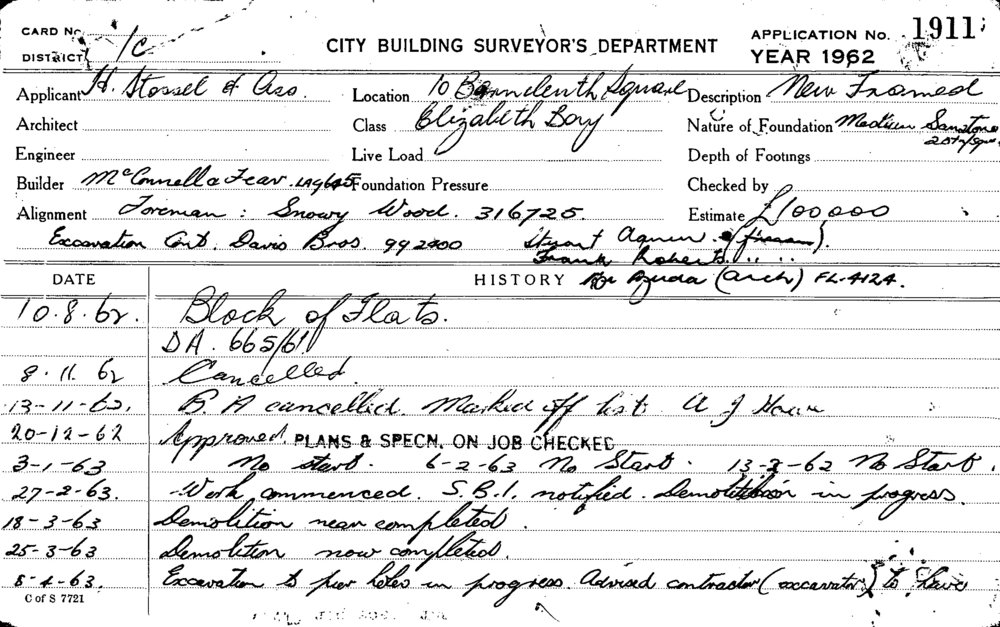 CARD No. CITY BUILDING SURVEYOR'S DEPARTMENT APPLICATION No. 1911
DISTRICT 1/C YEAR 1962
Applicant H. Stossel & Aso. Location 10 Barncleuth Square Description New Framed
Architect Class Elizabeth Bay Nature of Foundation Medium Sanstone
Engineer Live Load Depth of Footings
Builder McConnell & Fear. LA9645 Foundation Pressure Checked by
Alignment Foreman : Snowy Wood. 316725. Estimate £100000
Excavation Cont. Davis Bros. 992400 Stuart Agnew
Frank Roberts " "
DATE HISTORY (Arch) FL-4124.
10.8.62. Block of Flats.
DA. 665/61
8.11.62 Cancelled.
13-11-62. B.A cancelled. Marked off list. A J
20-12-62 Approved. PLANS & SPECN. ON JOB CHECKED
3-1-63 No start. 6-2-63 No Start. 13-2-62 No Start.
27-2-63. Work commenced. S.B.I. notified. Demolition in progress.
18-3-63 Demolition near completed.
25-3-63 Demolition now completed.
8-4-63. Excavation to pier holes in progress. Advised contractor (excavator) to have
C of S 7721